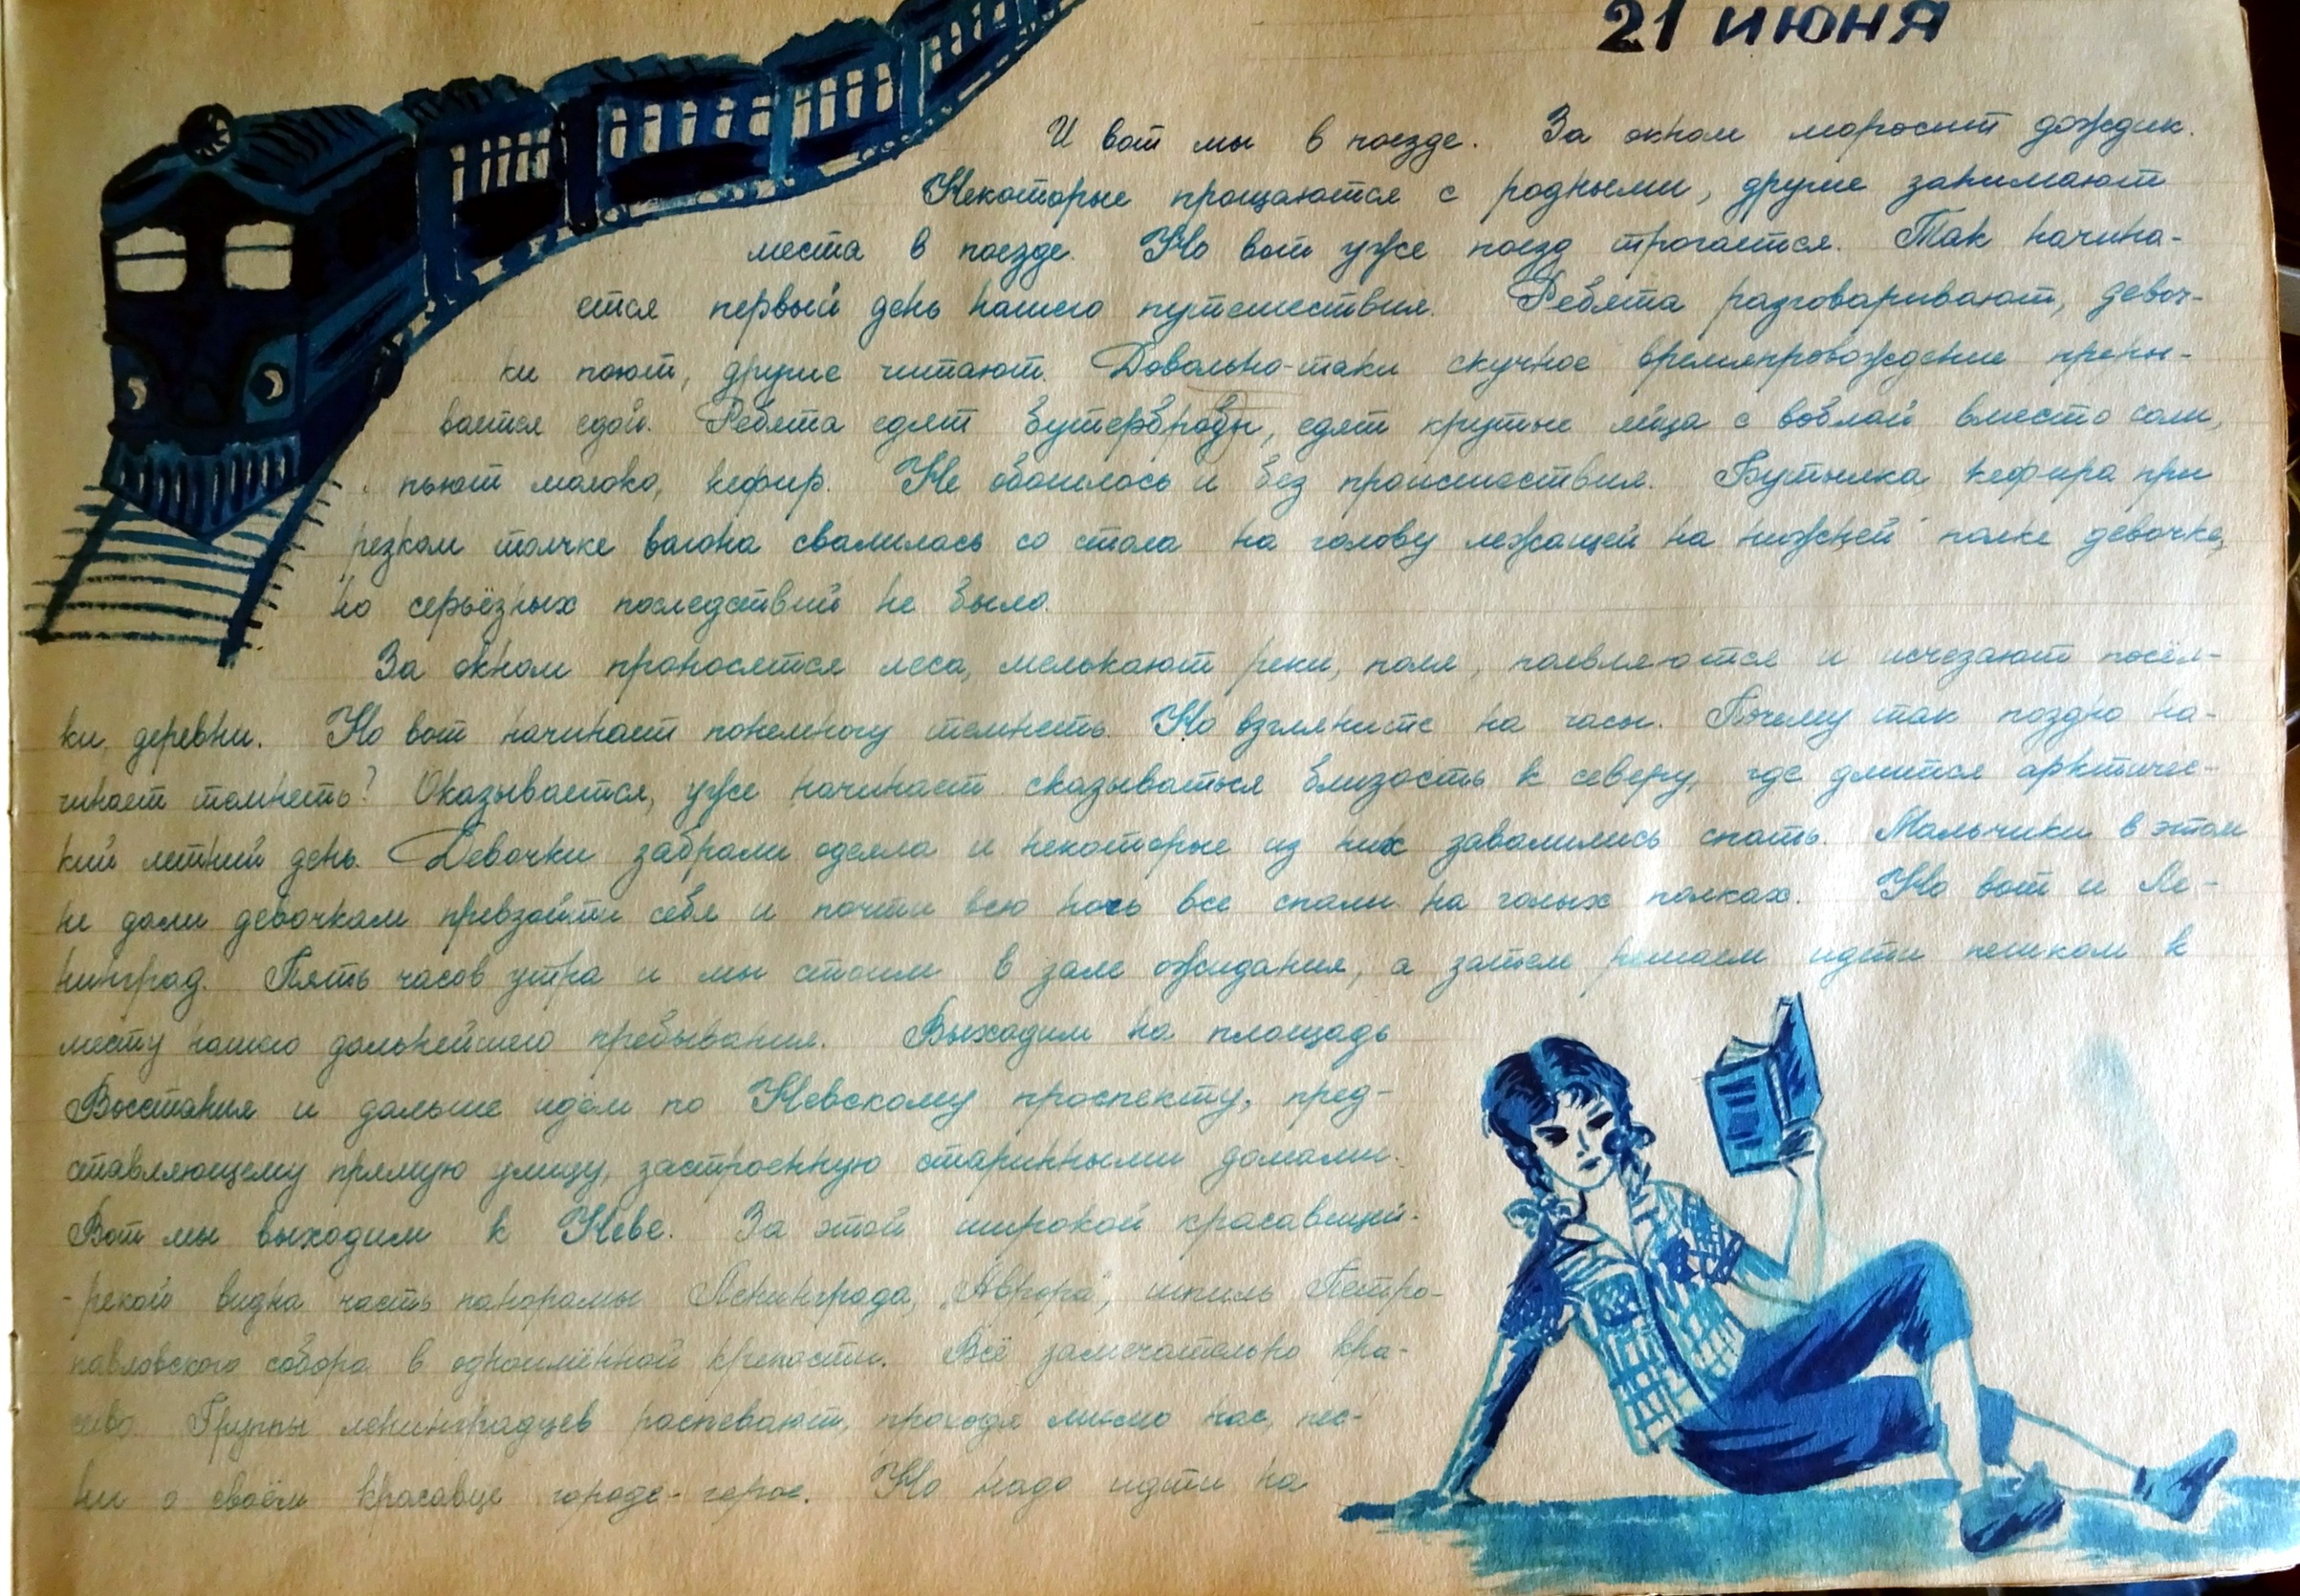 21 ИЮНЯ
И вот мы в поезде. За окном моросит дождик.
Некоторые прощаются с родными, другие занимают
места в поезде. Но вот уже поезд трогается. Так начина-
ется первый день нашего путешествия. Ребята разговаривают, девоч-
ки поют, другие читают. Довольно-таки скучное времяпровождение преры-
вается едой. Ребята едят бутерброды, едят крутые яйца с воблой вместо соли,
пьют молоко, кефир. Не обошлось и без происшествия. Бутылка кефира при
резком толчке вагона свалилась со стола на голову лежащей на нижней полке девочке,
но серьёзных последствий не было.
За окном проносятся леса, мелькают реки, поля, появляются и исчезают посёл-
ки, деревни. Но вот начинает понемногу темнеть. Но взгляните на часы. Почему так поздно на-
чинает темнеть? Оказывается, уже начинает сказываться близость к северу, где длится арктичес-
кий летний день. Девочки забрали одеяла и некоторые из них завалились спать. Мальчики в этом
не дали девочкам превзойти себя и почти всю ночь все спали на голых полках. Но вот и Ле-
нинград. Пять часов утра и мы стоим в зале ожидания, а затем решаем идти пешком к
месту нашего дальнейшего пребывания. Выходим на площадь
Восстания и дальше идём по Невскому проспекту, пред-
ставляющему прямую улицу, застроенную старинными домами.
Вот мы выходим к Неве. За этой широкой красавицей-
-рекой видна часть панорамы Ленинграда, „Аврора", шпиль Петро-
павловского собора в одноимённой крепости. Всё замечательно кра-
сиво. Группы ленинградцев распевают, проходя мимо нас, пес-
ни о своём красавце городе-герое. Но надо идти на